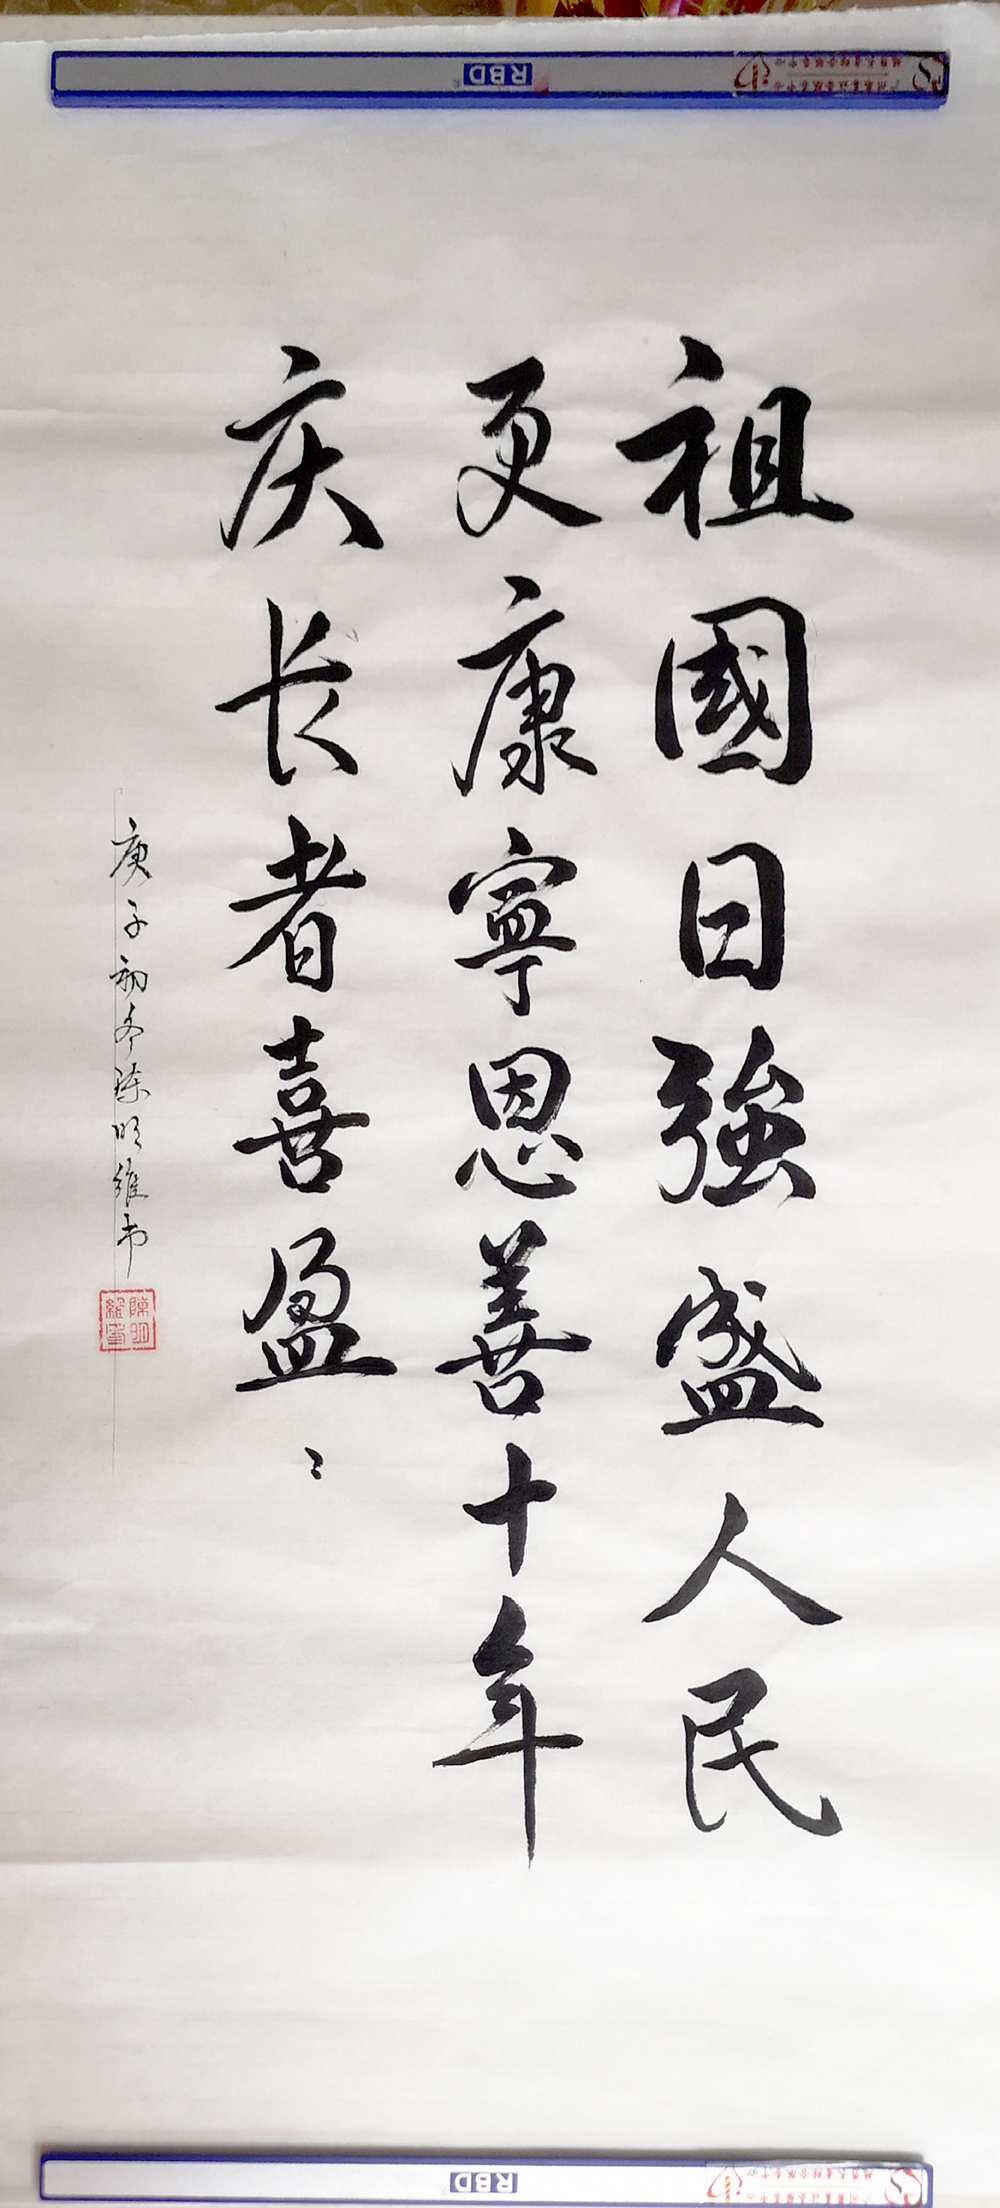 祖國日強盛人民
更康寧恩善十年
庆长者喜盈〻
庚子初冬陈明維书
RBD
RBD